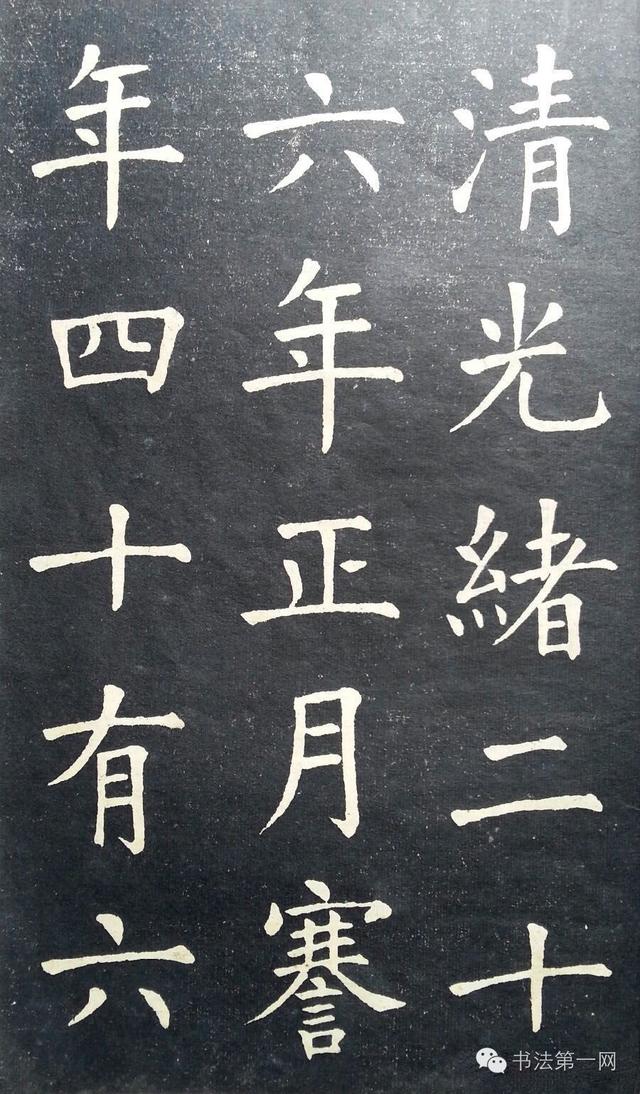 清光緒二十
六年正月謇
年四十有六
书法第一网